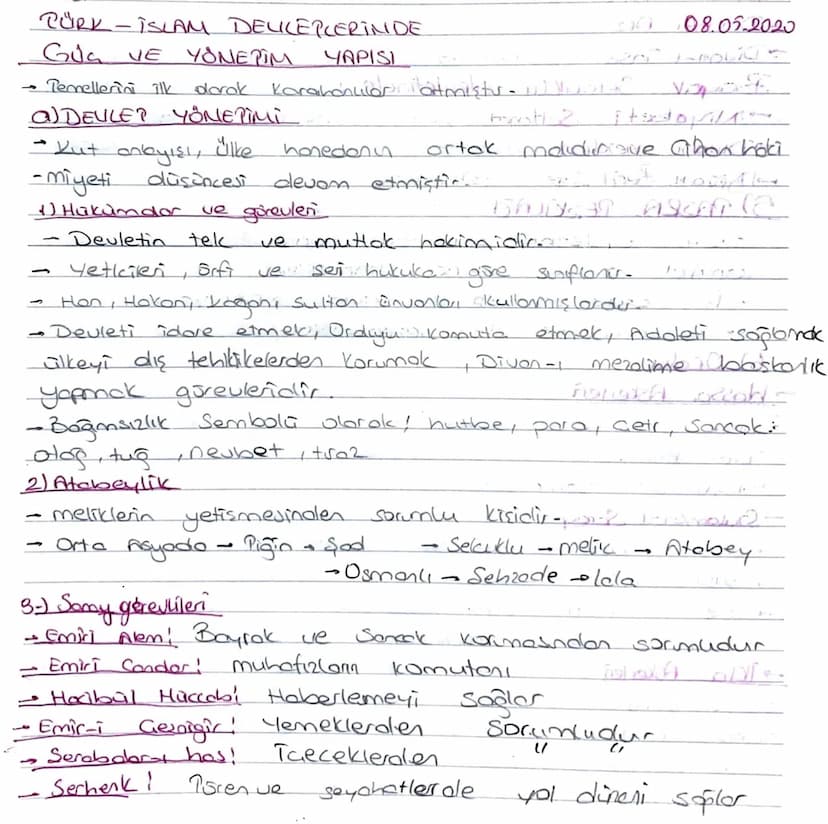 TÜRK-İSLAM DEVLETLERİNDE 08.05.2020
GÜÇ VE YÖNETİM YAPISI
→ Temellerini ilk olarak Karahanlılar atmıştır.
a) DEVLET YÖNETİMİ
→ Kut anlayışı, ülke hanedanın ortak malıdır ve Cihan haki
-miyeti düşüncesi devam etmiştir.
1) Hükümdar ve görevleri
- Devletin tek ve mutlak hakimidir.
→ Yetkileri, örfi ve şeri hukuka göre sınıflanır.
- Han, Hakan, Kağan, Sultan ünvanları kullanmışlardır.
→ Devleti idare etmek, Orduyu komuta etmek, Adaleti sağlamak
ülkeyi dış tehlikelerden korumak, Divan-ı mezalime başkanlık
yapmak görevleridir.
→ Bağımsızlık Sembolü olarak! hutbe, para, Çetr, Sancak,
otağ, tuğ, nevbet, tıraz
2) Atabeylik
- meliklerin yetişmesinden sorumlu kişidir.
→ Orta Asyada → Tigin → Şad → Selçuklu → melik → Atabey
→ Osmanlı → Şehzade → lala
3-) Saray görevlileri
→ Emiri Alem! Bayrak ve Sancak korumasından sorumudur
- Emiri Candar! muhafızların komutanı
→ Hacibül Hüccab! Haberlemeyi sağlar
→ Emir-i Çeşnigir! Yemeklerden sorumludur
→ Şerabdar-ı has! İçeceklerden " "
- Serhenk! Tören ve seyahatlerde yol düzeni sağlar